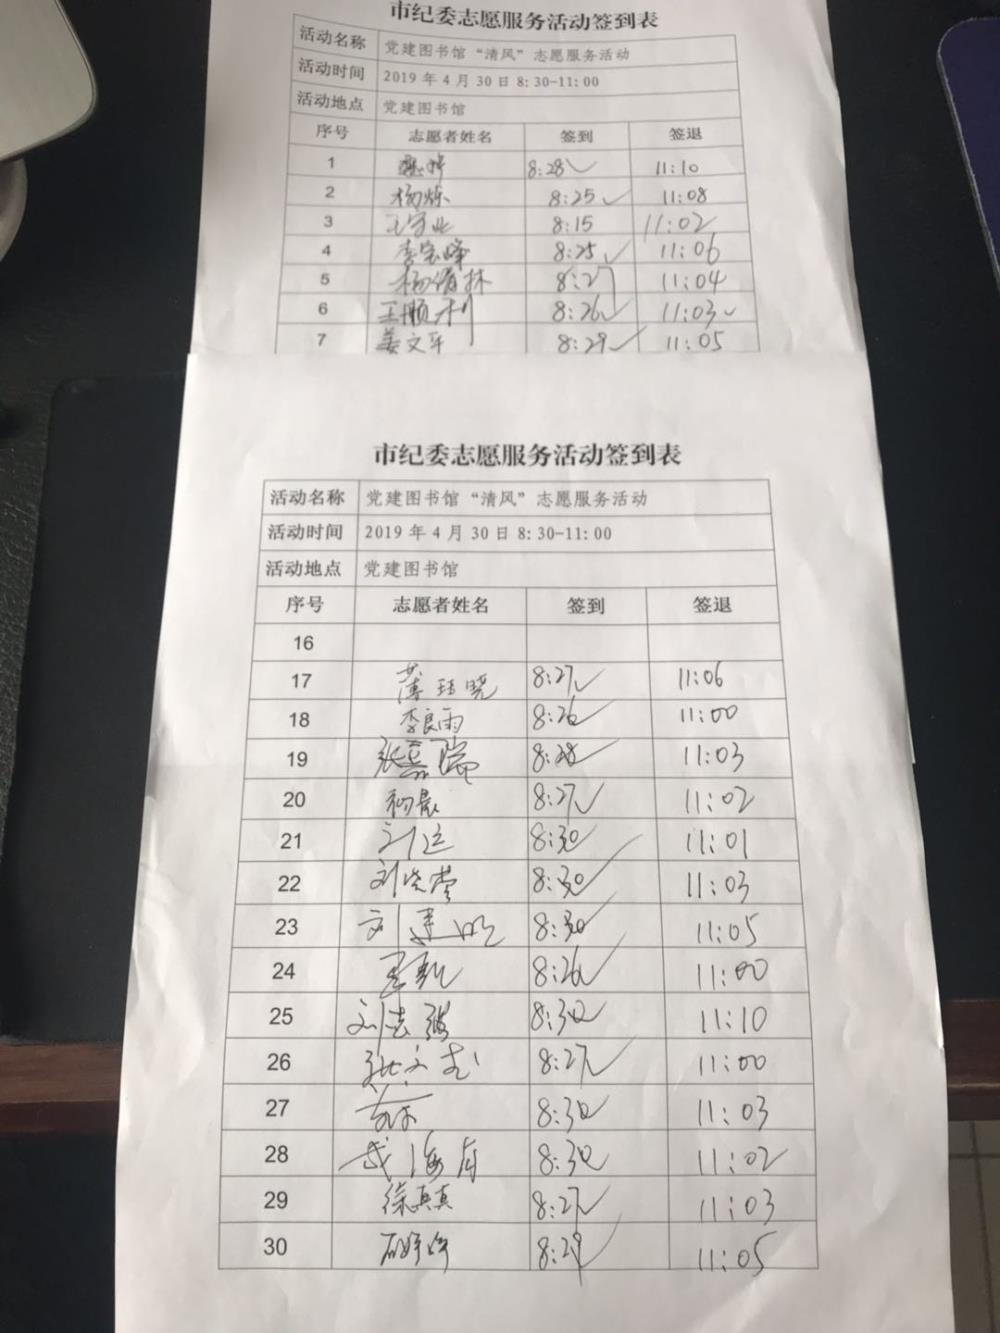 市纪委志愿服务活动签到表
活动名称 党建图书馆“清风”志愿服务活动
活动时间 2019 年 4 月 30 日 8: 30-11: 00
活动地点 党建图书馆
序号 志愿者姓名 签到 签退
1 8:28✓ 11:10
2 杨烁 8:25✓ 11:08
3 王守业 8:15 11:02
4 李宝峰 8:25✓ 11:06
5 8:27 11:04
6 王顺利 8:26✓ 11:03✓
7 姜文军 8:29✓ 11:05
市纪委志愿服务活动签到表
活动名称 党建图书馆“清风”志愿服务活动
活动时间 2019 年 4 月 30 日 8: 30-11: 00
活动地点 党建图书馆
序号 志愿者姓名 签到 签退
16
17 薄珏晓 8:27✓ 11:06
18 李良雨 8:26✓ 11:00
19 张嘉瑞 8:28✓ 11:03
20 初晨 8:27✓ 11:02
21 8:30✓ 11:01
22 刘晓莹 8:30✓ 11:03
23 刘建明 8:30✓ 11:05
24 8:26✓ 11:00
25 刘志强 8:30✓ 11:10
26 8:27✓ 11:00
27 8:30✓ 11:03
28 8:30✓ 11:02
29 徐真真 8:27✓ 11:03
30 石婷婷 8:29✓ 11:05